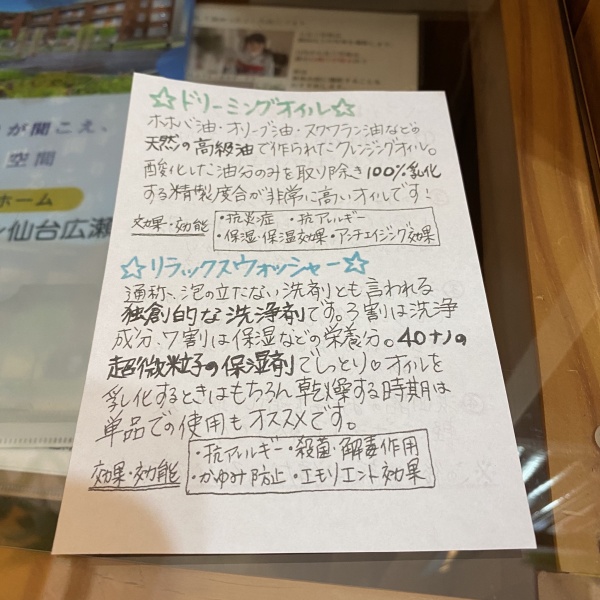 が聞こえ、
空間
ホーム
仙台広瀬
☆ドリーミングオイル☆
ホホバ油・オリーブ油・スクワラン油などの
天然の高級油で作られたクレンジングオイル。
酸化した油分のみを取り除き100%乳化
する精製度合が非常に高いオイルです!
効果・効能
・抗炎症 ・抗アレルギー
・保湿・保温効果・アンチエイジング効果
☆リラックスウォッシャー☆
通称、泡の立たない洗剤とも言われる
独創的な洗浄剤です。3割は洗浄
成分、7割は保湿などの栄養分。40ナノの
超微粒子の保湿剤でしっとり♡オイルを
乳化するときはもちろん乾燥する時期は
単品での使用もオススメです。
効果・効能
・抗アレルギー・殺菌・解毒作用
・かゆみ防止・エモリエント効果